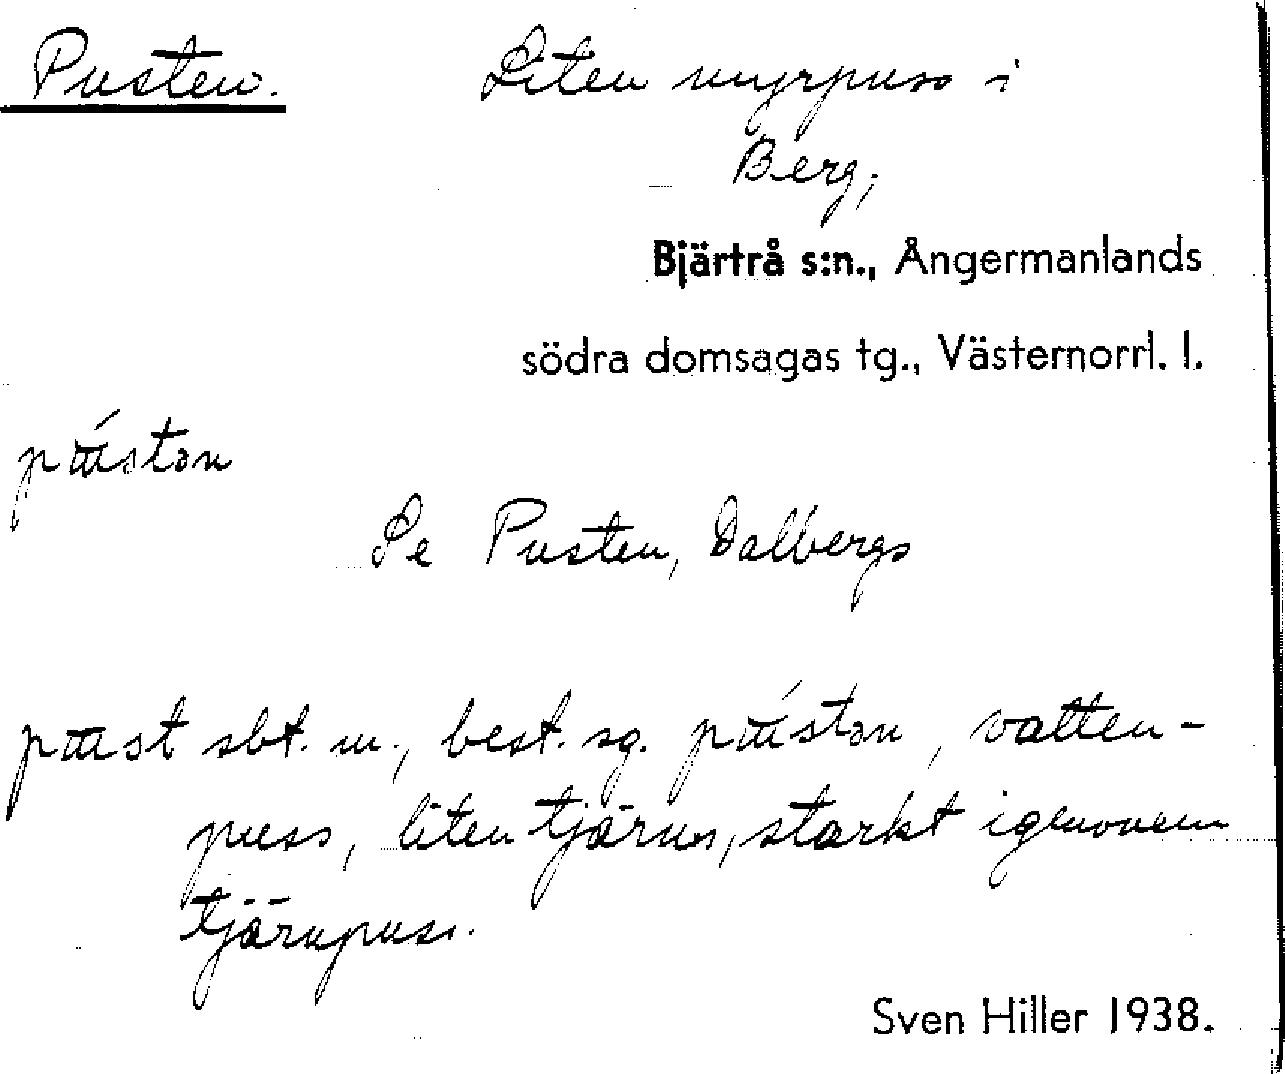 Pusten. Liten myrpuss i
Berg,
Bjärtrå s:n., Ångermanlands
södra domsagas tg., Västernorrl. l.
Se Pusten, Dalbergs
sbt. m., best. sg. vatten-
puss, liten tjärn, starkt igenvuxen
tjärnpuss.
Sven Hiller 1938.